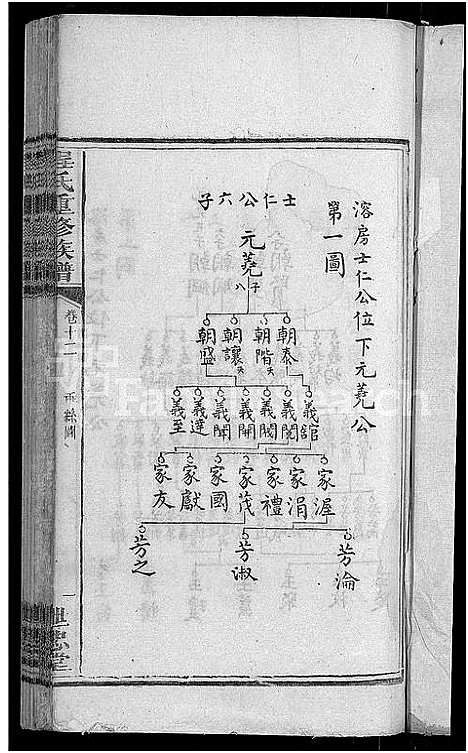 溶房士仁公位下元蕘公
第一圖
士仁公六子
元蕘
子八
朝泰
朝階夭
朝讓夭
朝盛
義館
義閱
義閣
義開
義聞
義達
義至
家渥
家涓
家禮
家茂
家國
家獻
家友
芳淪
芳淑
芳之
程氏重修族譜
卷十二
一
世忠堂